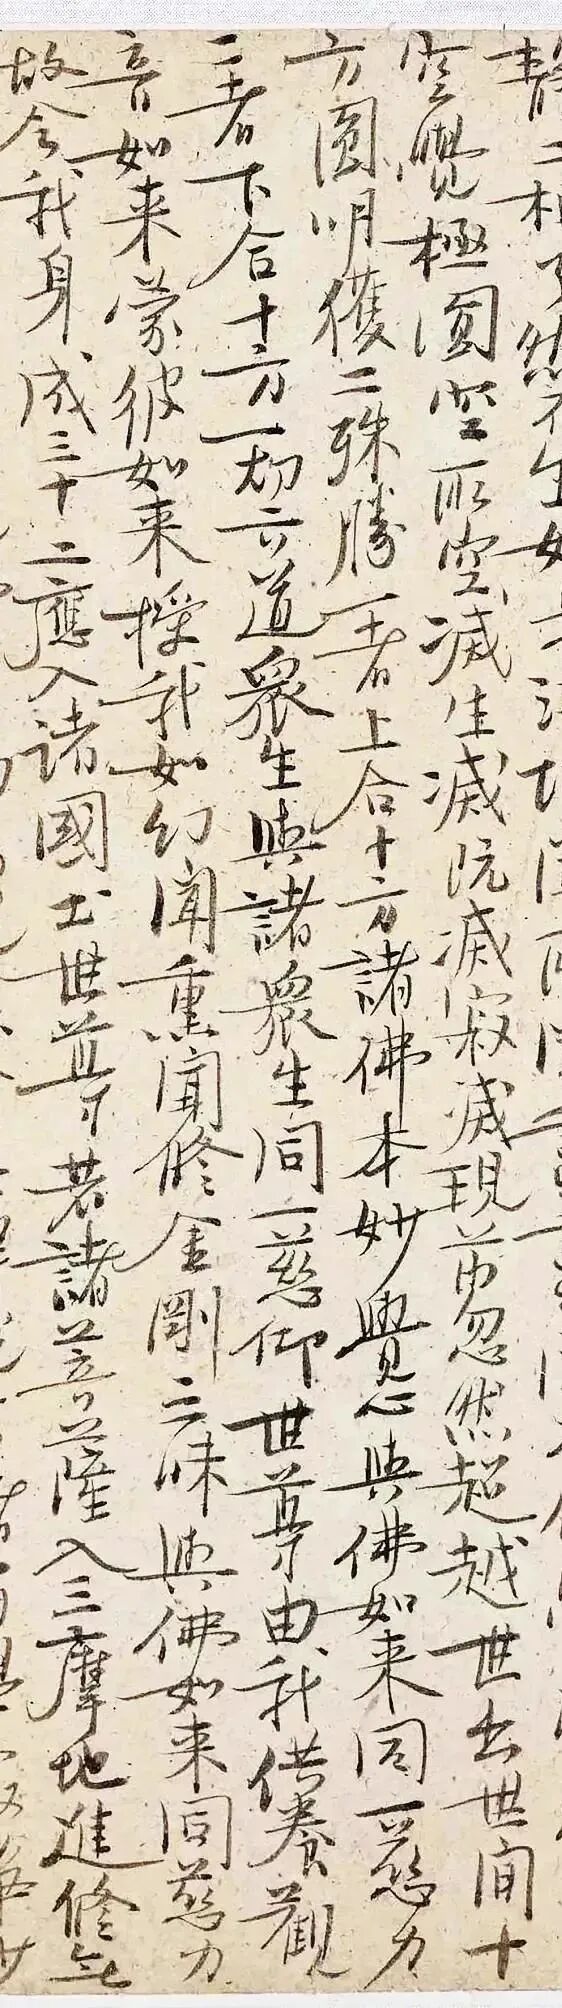 靜二相了然不生如
空覺極圓空所空滅生滅既滅寂滅現前忽然超越世出世間十
方圓明獲二殊勝一者上合十方諸佛本妙覺心與佛如来同一慈力
二者下合十方一切六道眾生與諸眾生同一慈仰世尊由我供養觀
音如来蒙彼如来授我如幻聞熏聞修金剛三昧與佛如来同慈力
故令我身成三十二應入諸國土世尊若諸菩薩入三摩地進修無